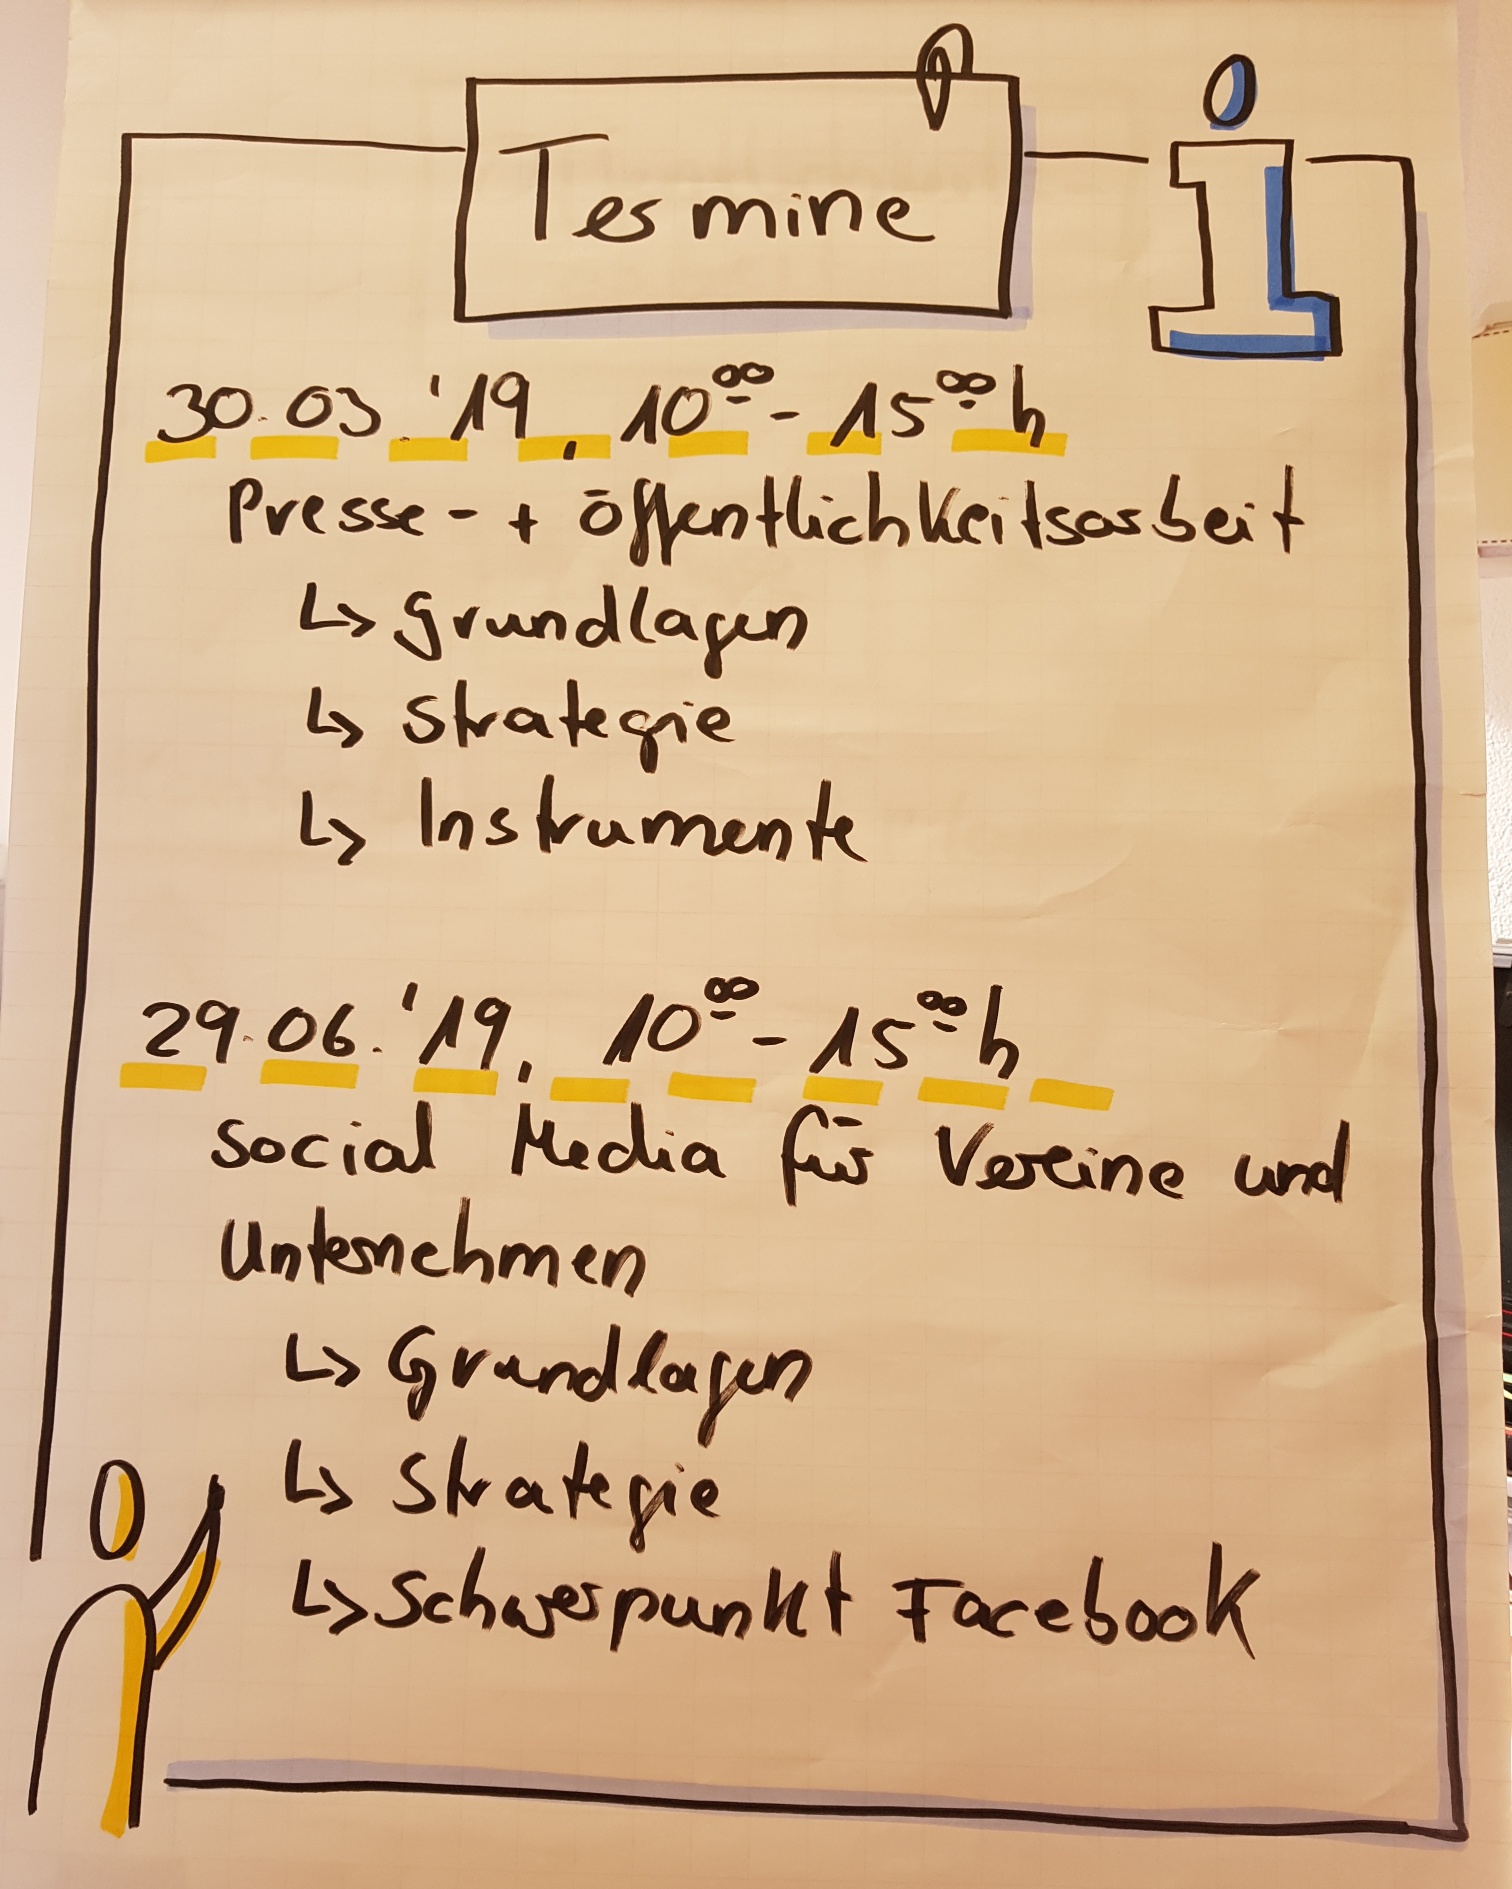 Termine
i
30.03.'19, 10⁰⁰ - 15⁰⁰ h
Presse- + Öffentlichkeitsarbeit
↳ Grundlagen
↳ Strategie
↳ Instrumente
29.06.'19, 10⁰⁰ - 15⁰⁰ h
Social Media für Vereine und
Unternehmen
↳ Grundlagen
↳ Strategie
↳ Schwerpunkt Facebook